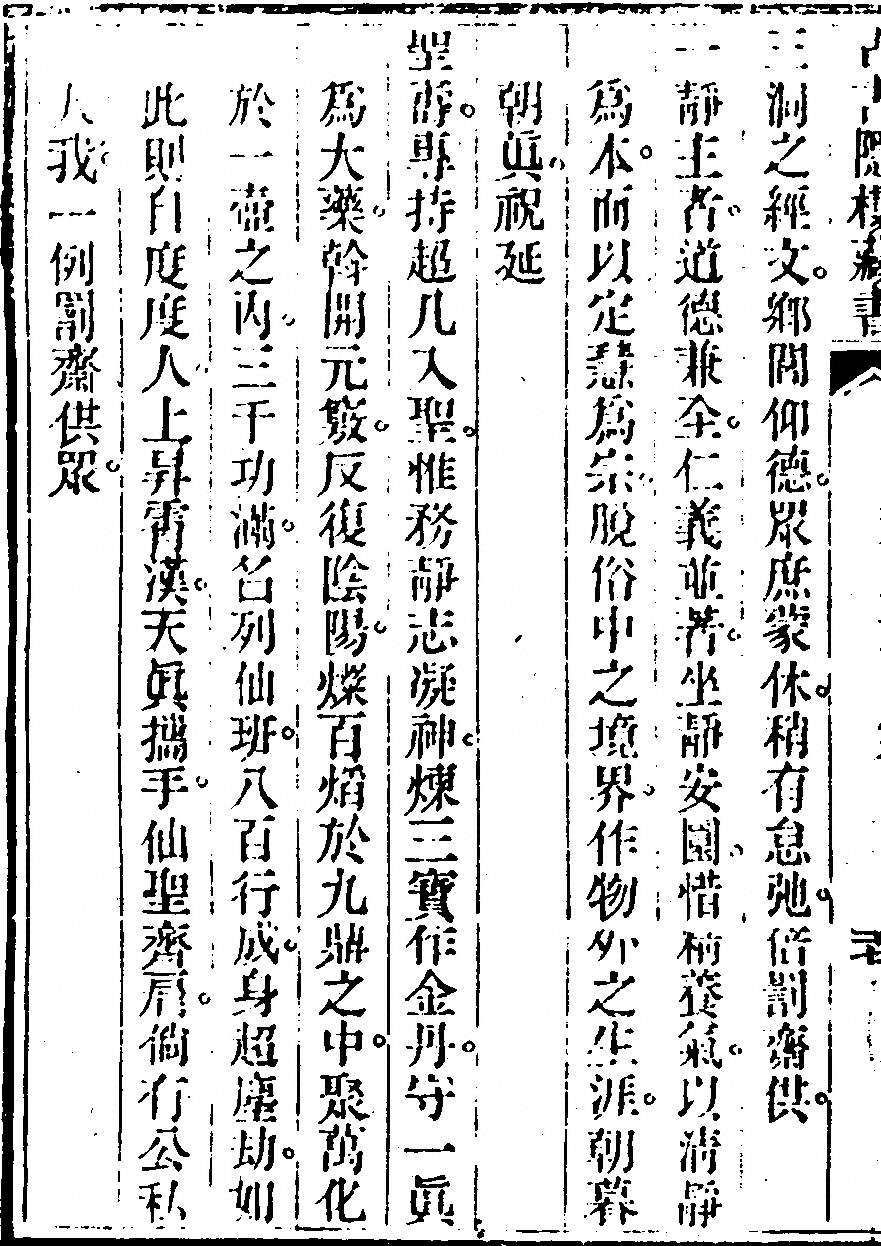 三洞之經文鄉閭仰德眾庶蒙休稍有怠弛倍罰齋供
一靜主者道德兼全仁義並著坐靜安圜惜精養氣以清靜
為本而以定慧為宗脫俗中之境界作物外之生涯朝暮
朝眞祝延
聖壽專持超凡入聖惟務靜志凝神煉三寶作金丹守一眞
為大藥幹開元竅反復陰陽燦百熖於九鼎之中聚萬化
於一壺之內三千功滿名列仙班八百行成身超塵劫如
此則自度度人上昇霄漢天眞攜手仙聖齊肩倘有公私
人我一例罰齋供眾